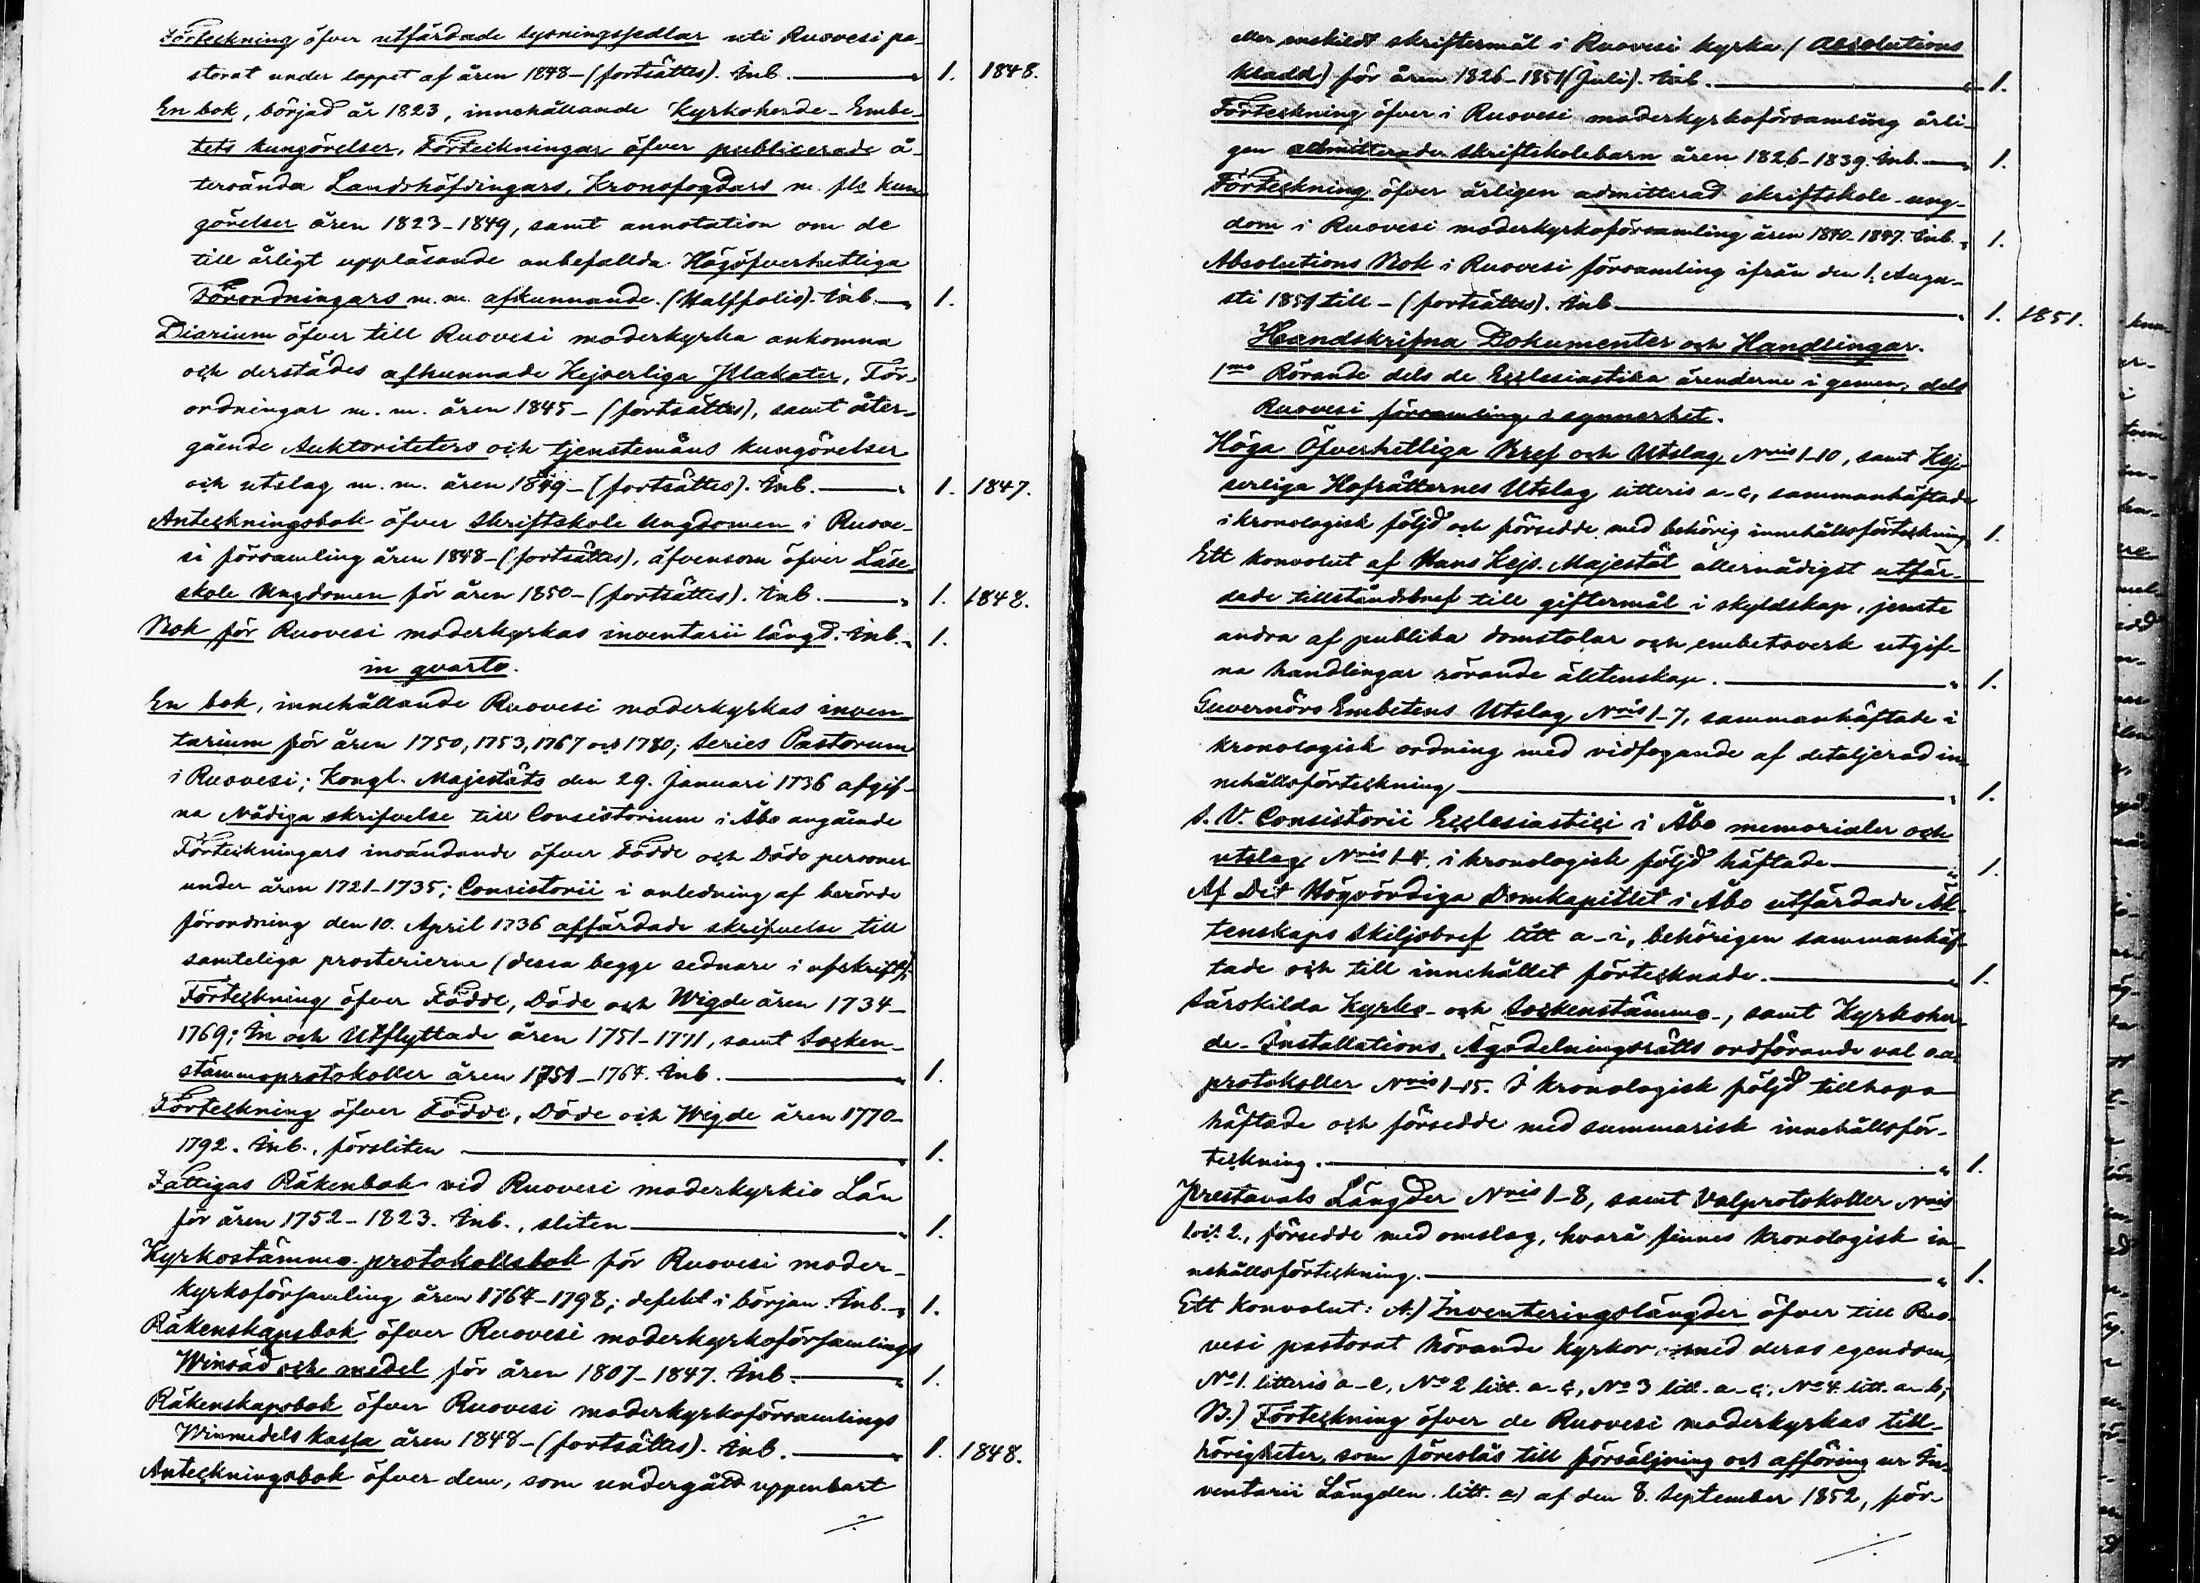 Förteckning öfver utfärdade lysningssedlar uti Ruovesi pa-
storat under loppet af åren 1848-(fortsättes). Inb. " 1. 1848.
En bok, börjad år 1823, innehållande Kyrkoherde-Embe-
tets kungörelser, Förteckningar öfver publicerade å-
tersända Landshöfdingars, Kronofogdars m. fls kun-
görelser åren 1823-1849, samt annotation om de
till årligt uppläsande anbefallda Högöfverhetliga
Förordningars m. m. afkunnande. (Halffolio). Inb. " 1.
Diarium öfver till Ruovesi moderkyrka ankomna
och derstädes afkunnade Kejserliga Plakater, För-
ordningar m. m. åren 1845-(fortsättes), samt åter-
gående Auktoriteters och tjenstemäns kungörelser
och utslag m. m. åren 1849-(fortsättes). Inb. " 1. 1847.
Anteckningsbok öfver Skriftskole Ungdomen i Ruove-
si församling åren 1848-(fortsättes), äfvensom öfver Läse
skole Ungdomen för åren 1850-(fortsättes). Inb. " 1. 1848.
Bok för Ruovesi moderkyrkas inventarii längd. Inb. " 1.
in qvarto.
En bok, innehållande Ruovesi moderkyrkas inven-
tarium för åren 1750, 1753, 1767 och 1780; Series Pastorum
i Ruovesi; Kongl. Majestäts den 29. Januari 1736 afgif-
na Nådiga skrifvelse till Consistorium i Åbo angående
Förteckningars insändande öfver Födde och Döde personer
under åren 1721-1735; Consistorii i anledning af berörde
förordning den 10. April 1736 affärdade skrifvelse till
samteliga prosterierne (dessa begge sednare i afskrift);
Förteckning öfver Födde, Döde och Wigde åren 1734-
1769; In och Utflyttade åren 1751-1771, samt Socken-
stämmoprotokoller åren 1751-1764. Inb. " 1.
Förteckning öfver Födde, Döde och Wigde åren 1770-
1792. Inb., försliten " 1.
Fattigas Räkenbok vid Ruovesi moderkyrkio Län
för åren 1752-1823. Inb., sliten " 1.
Kyrkostämmo-protokollsbok för Ruovesi moder-
kyrkoförsamling åren 1764-1798; defekt i början. Inb. " 1.
Räkenskapsbok öfver Ruovesi moderkyrkoförsamlings
Winsäd och medel för åren 1807-1847. Inb. " 1.
Räkenskapsbok öfver Ruovesi moderkyrkoförsamlings
Winmedels kassa åren 1848-(fortsättes). Inb. " 1. 1848.
Anteckningsbok öfver dem, som undergått uppenbart
eller enskildt skriftermål i Ruovesi kyrka (Absolutions
kladd) för åren 1826-1851 (Juli). Inb. " 1.
Förteckning öfver i Ruovesi moderkyrkoförsamling årli-
gen admitterade skriftskolebarn åren 1826-1839. Inb. " 1.
Förteckning öfver årligen admitterad skriftskole-ung-
dom i Ruovesi moderkyrkoförsamling åren 1840-1847. Inb. " 1.
Absolutions Bok i Ruovesi församling ifrån den 1. Augu-
sti 1851 till-(fortsättes). Inb. " 1. 1851.
Handskrifna Dokumenter och Handlingar.
1mo Rörande dels de Ecclesiastika ärenderne i gemen, dels
Ruovesi församling i synnerhet.
Höga Öfverhetliga Bref och Utslag Nris 1-10, samt Kej-
serliga Hofrätternes Utslag litteris a-c, sammanhäftade
i kronologisk följd och försedde med behörig innehållsförteckning 1.
Ett konvolut af Hans Kejs. Majestät allernådigst utfär-
dade tillståndsbref till giftermål i skyldskap, jemte
andra af publika domstolar och embetsverk utgif-
na handlingar rörande äktenskap. " 1.
Guvernörs Embetens Utslag Nris 1-7, sammanhäftade i
kronologisk ordning med vidfogande af detaljerad in-
nehållsförteckning " 1.
S. V. Consistorii Ecclesiastici i Åbo memorialer och
utslag Nris 1-4. i kronologisk följd häftade " 1.
Af Det Högvördiga Domkapitlet i Åbo utfärdade Äk-
tenskaps Skiljobref litt a-i, behörigen sammanhäf-
tade och till innehållet förtecknade. " 1.
Särskilda Kyrko- och Sockenstämmo-, samt Kyrkoher-
de-Installations, Ägodelningsrätts ordförande val o.a.
protokoller Nris 1-15. I kronologisk följd tillhopa
häftade och försedde med summarisk innehållsför-
teckning. " 1.
Prestavals Längder Nris 1-8, samt Valprotokoller Nris
1 och 2., försedde med omslag, hvarå finnes kronologisk in-
nehållsförteckning. " 1.
Ett konvolut: A.) Inventeringslängder öfver till Ruo-
vesi pastorat hörande kyrkor med deras egendom,
No 1. litteris a-e, No 2 litt. a-c, No 3 litt. a-c, No 4. litt. a-b;
B.) Förteckning öfver de Ruovesi moderkyrkas till-
hörigheter, som föreslås till försäljning och afföring ur In-
ventarii Längden litt. a) af den 8. September 1852, för-